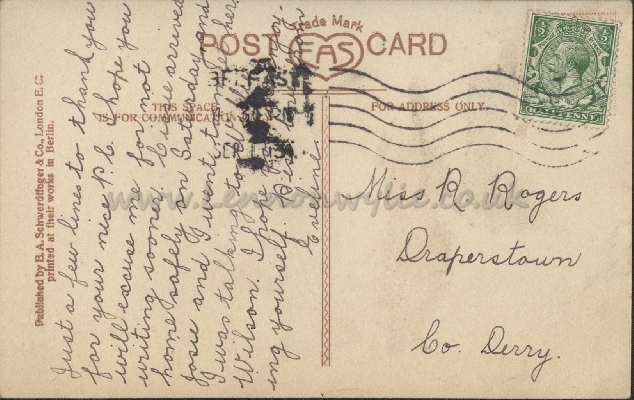 Trade Mark
POST EAS CARD
THIS SPACE
IS FOR COMMUNICATION
FOR ADDRESS ONLY.
HALFPENNY
Published by E. A. Schwerdtfeger & Co., London E. C.
printed at their works in Berlin.
Just a few lines to thank you
for your nice P.C. I hope you
will excuse me for not
writing sooner. Cissie arrived
home safely on Saturday and
Josie and I went to meet her
I was talking to
Wilson. I hope you enjoy-
ing yourself. Best
Eveline
Miss R. Rogers
Draperstown
Co. Derry.
www.Lennonwylie.co.uk